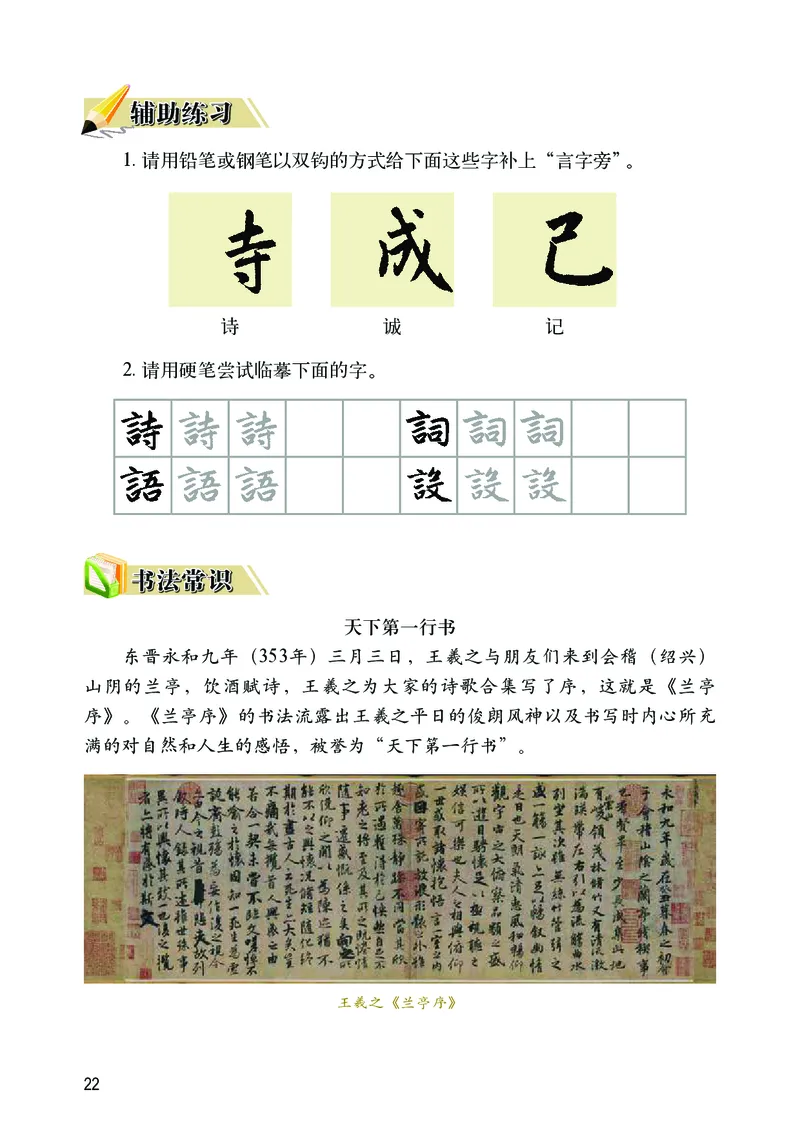 辅助练习
1. 请用铅笔或钢笔以双钩的方式给下面这些字补上“言字旁”。
寺 成 己
诗 诚 记
2. 请用硬笔尝试临摹下面的字。
詩 詩 詩 詞 詞 詞
語 語 語 設 設 設
书法常识
天下第一行书
东晋永和九年（353年）三月三日，王羲之与朋友们来到会稽（绍兴）
山阴的兰亭，饮酒赋诗，王羲之为大家的诗歌合集写了序，这就是《兰亭
序》。《兰亭序》的书法流露出王羲之平日的俊朗风神以及书写时内心所充
满的对自然和人生的感悟，被誉为“天下第一行书”。
永和九年歲在癸丑暮春之初會
于會稽山陰之蘭亭脩禊事
也群賢畢至少長咸集此地
有崇山峻領茂林脩竹又有清流激
湍暎帶左右引以為流觴曲水
列坐其次雖無絲竹管弦之
盛一觴一詠亦足以暢敘幽情
是日也天朗氣清惠風和暢仰
觀宇宙之大俯察品類之盛
所以遊目騁懷足以極視聽之
娛信可樂也夫人之相與俯仰
一世或取諸懷抱悟言一室之內
或因寄所託放浪形骸之外雖
趣舍萬殊靜躁不同當其欣
於所遇暫得於己怏然自足不
知老之將至及其所之既惓情
隨事遷感慨係之矣向之所
欣俛仰之閒以為陳迹猶不
能不以之興懷況脩短隨化終
期於盡古人云死生亦大矣豈
不痛哉每攬昔人興感之由
若合一契未嘗不臨文嗟悼不
能喻之於懷固知一死生為虛
誕齊彭殤為妄作後之視今
亦由今之視昔悲夫故列
敘時人錄其所述雖世殊事
異所以興懷其致一也後之攬
者亦將有感於斯文
王羲之《兰亭序》
22